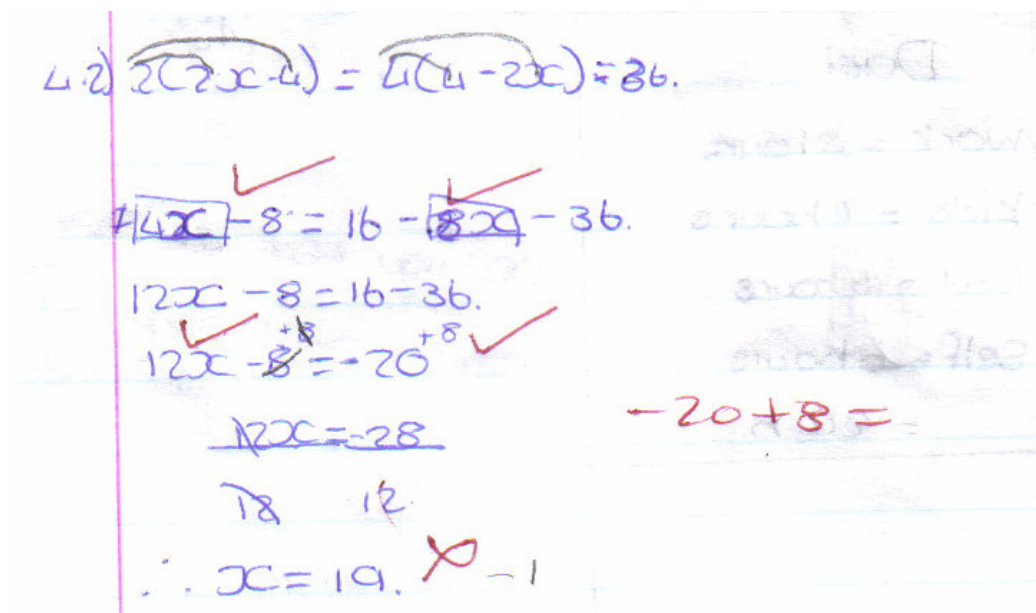 4.2) 2(2x-4) = 4(4-2x) = 36.
4x - 8 = 16 - 8x - 36.
12x - 8 = 16 - 36.
12x - 8 + 8 = -20 + 8
12x = -28
-20 + 8 =
12 12
∴ x = 19. -1